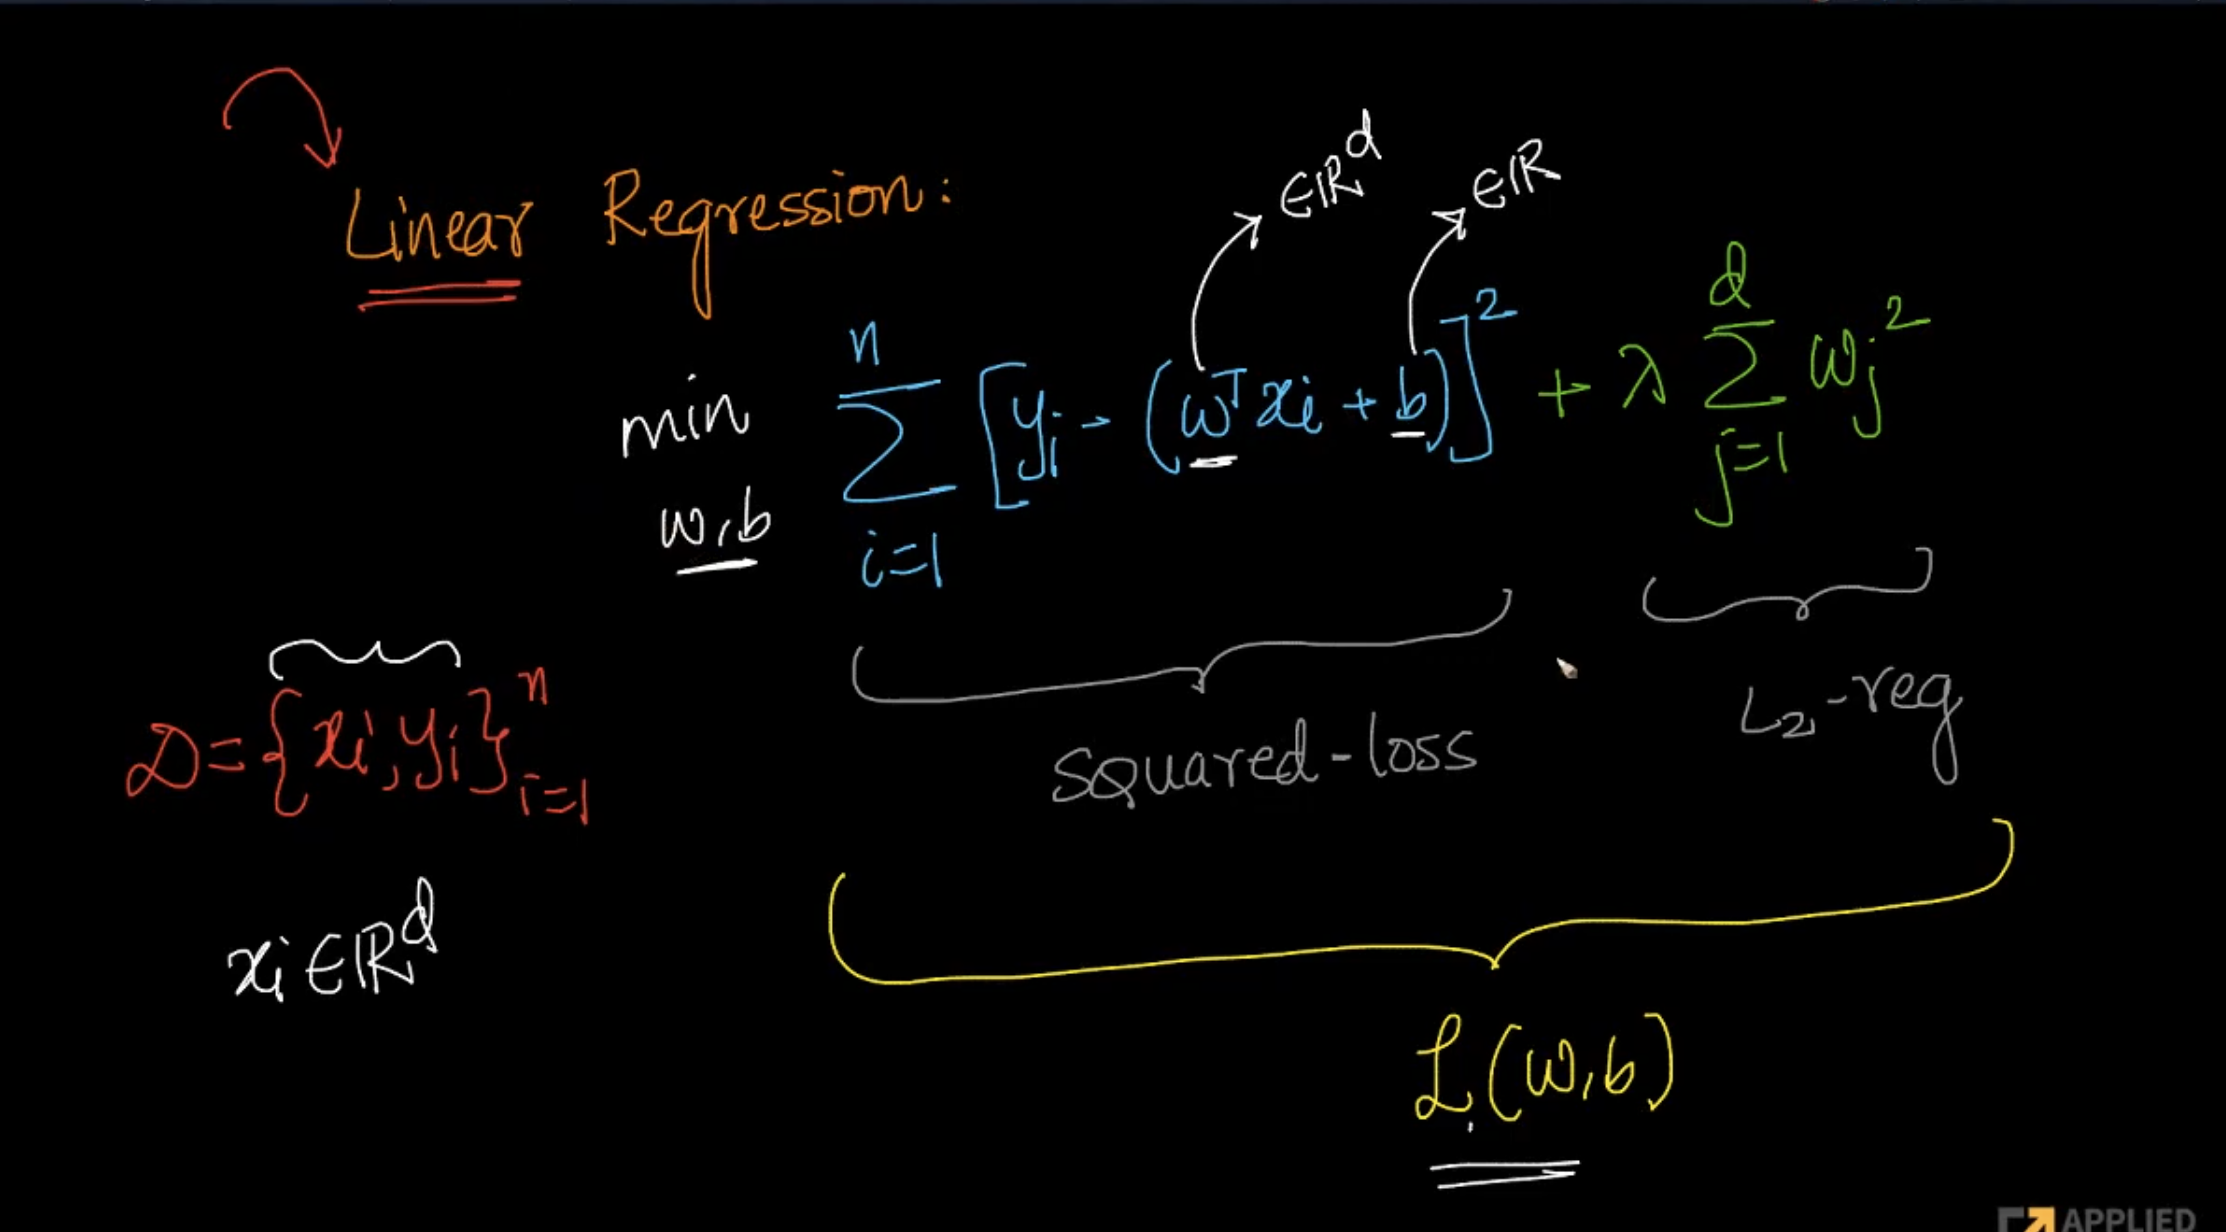 Linear Regression:
∈ℝ^d ∈ℝ
min_{w,b} ∑_{i=1}^{n} [y_i - (w^T x_i + b)]^2 + λ ∑_{j=1}^{d} w_j^2
squared-loss
L_2-reg
D = {x_i, y_i}_{i=1}^{n}
x_i ∈ ℝ^d
ℒ(w,b)
APPLIED